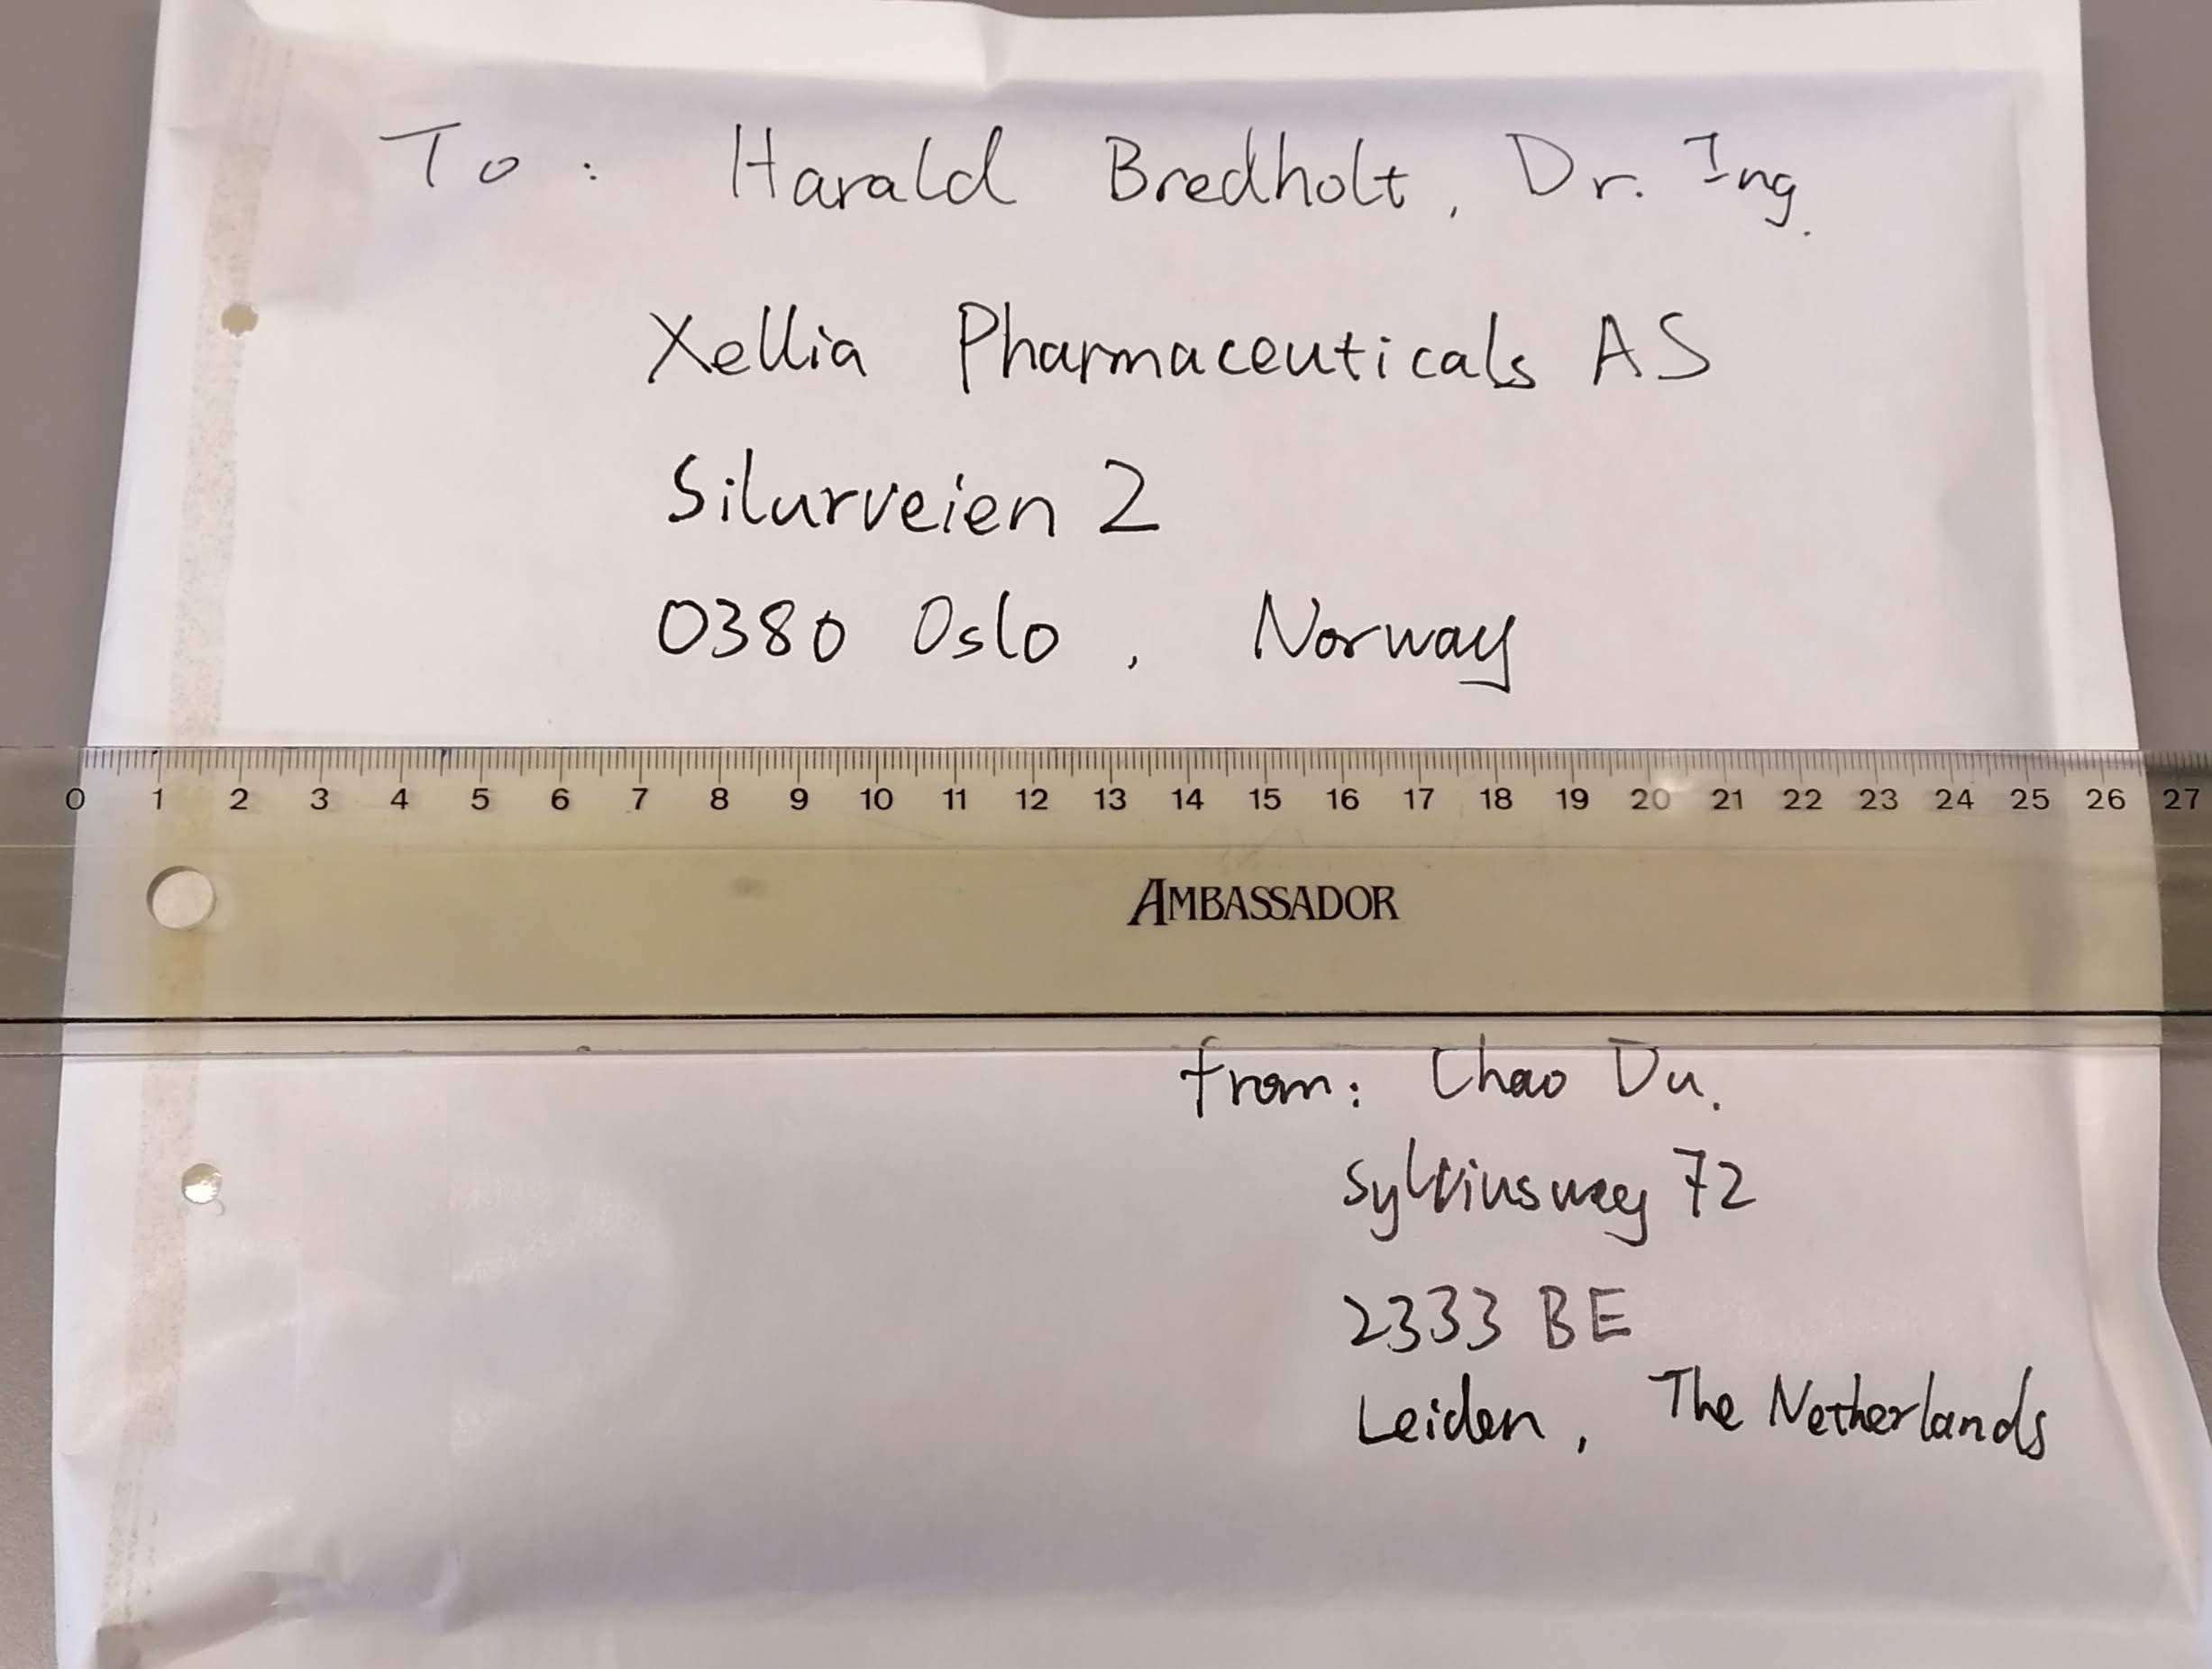 To: Harald Bredholt, Dr. Ing.
Xellia Pharmaceuticals AS
Silurveien 2
0380 Oslo, Norway
0 1 2 3 4 5 6 7 8 9 10 11 12 13 14 15 16 17 18 19 20 21 22 23 24 25 26 27
AMBASSADOR
from: Chao Du.
Sylviusweg 72
2333 BE
Leiden, The Netherlands